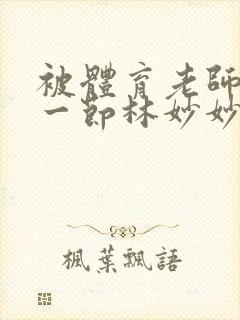 被體育老師
一節林妙妙
楓葉飄語